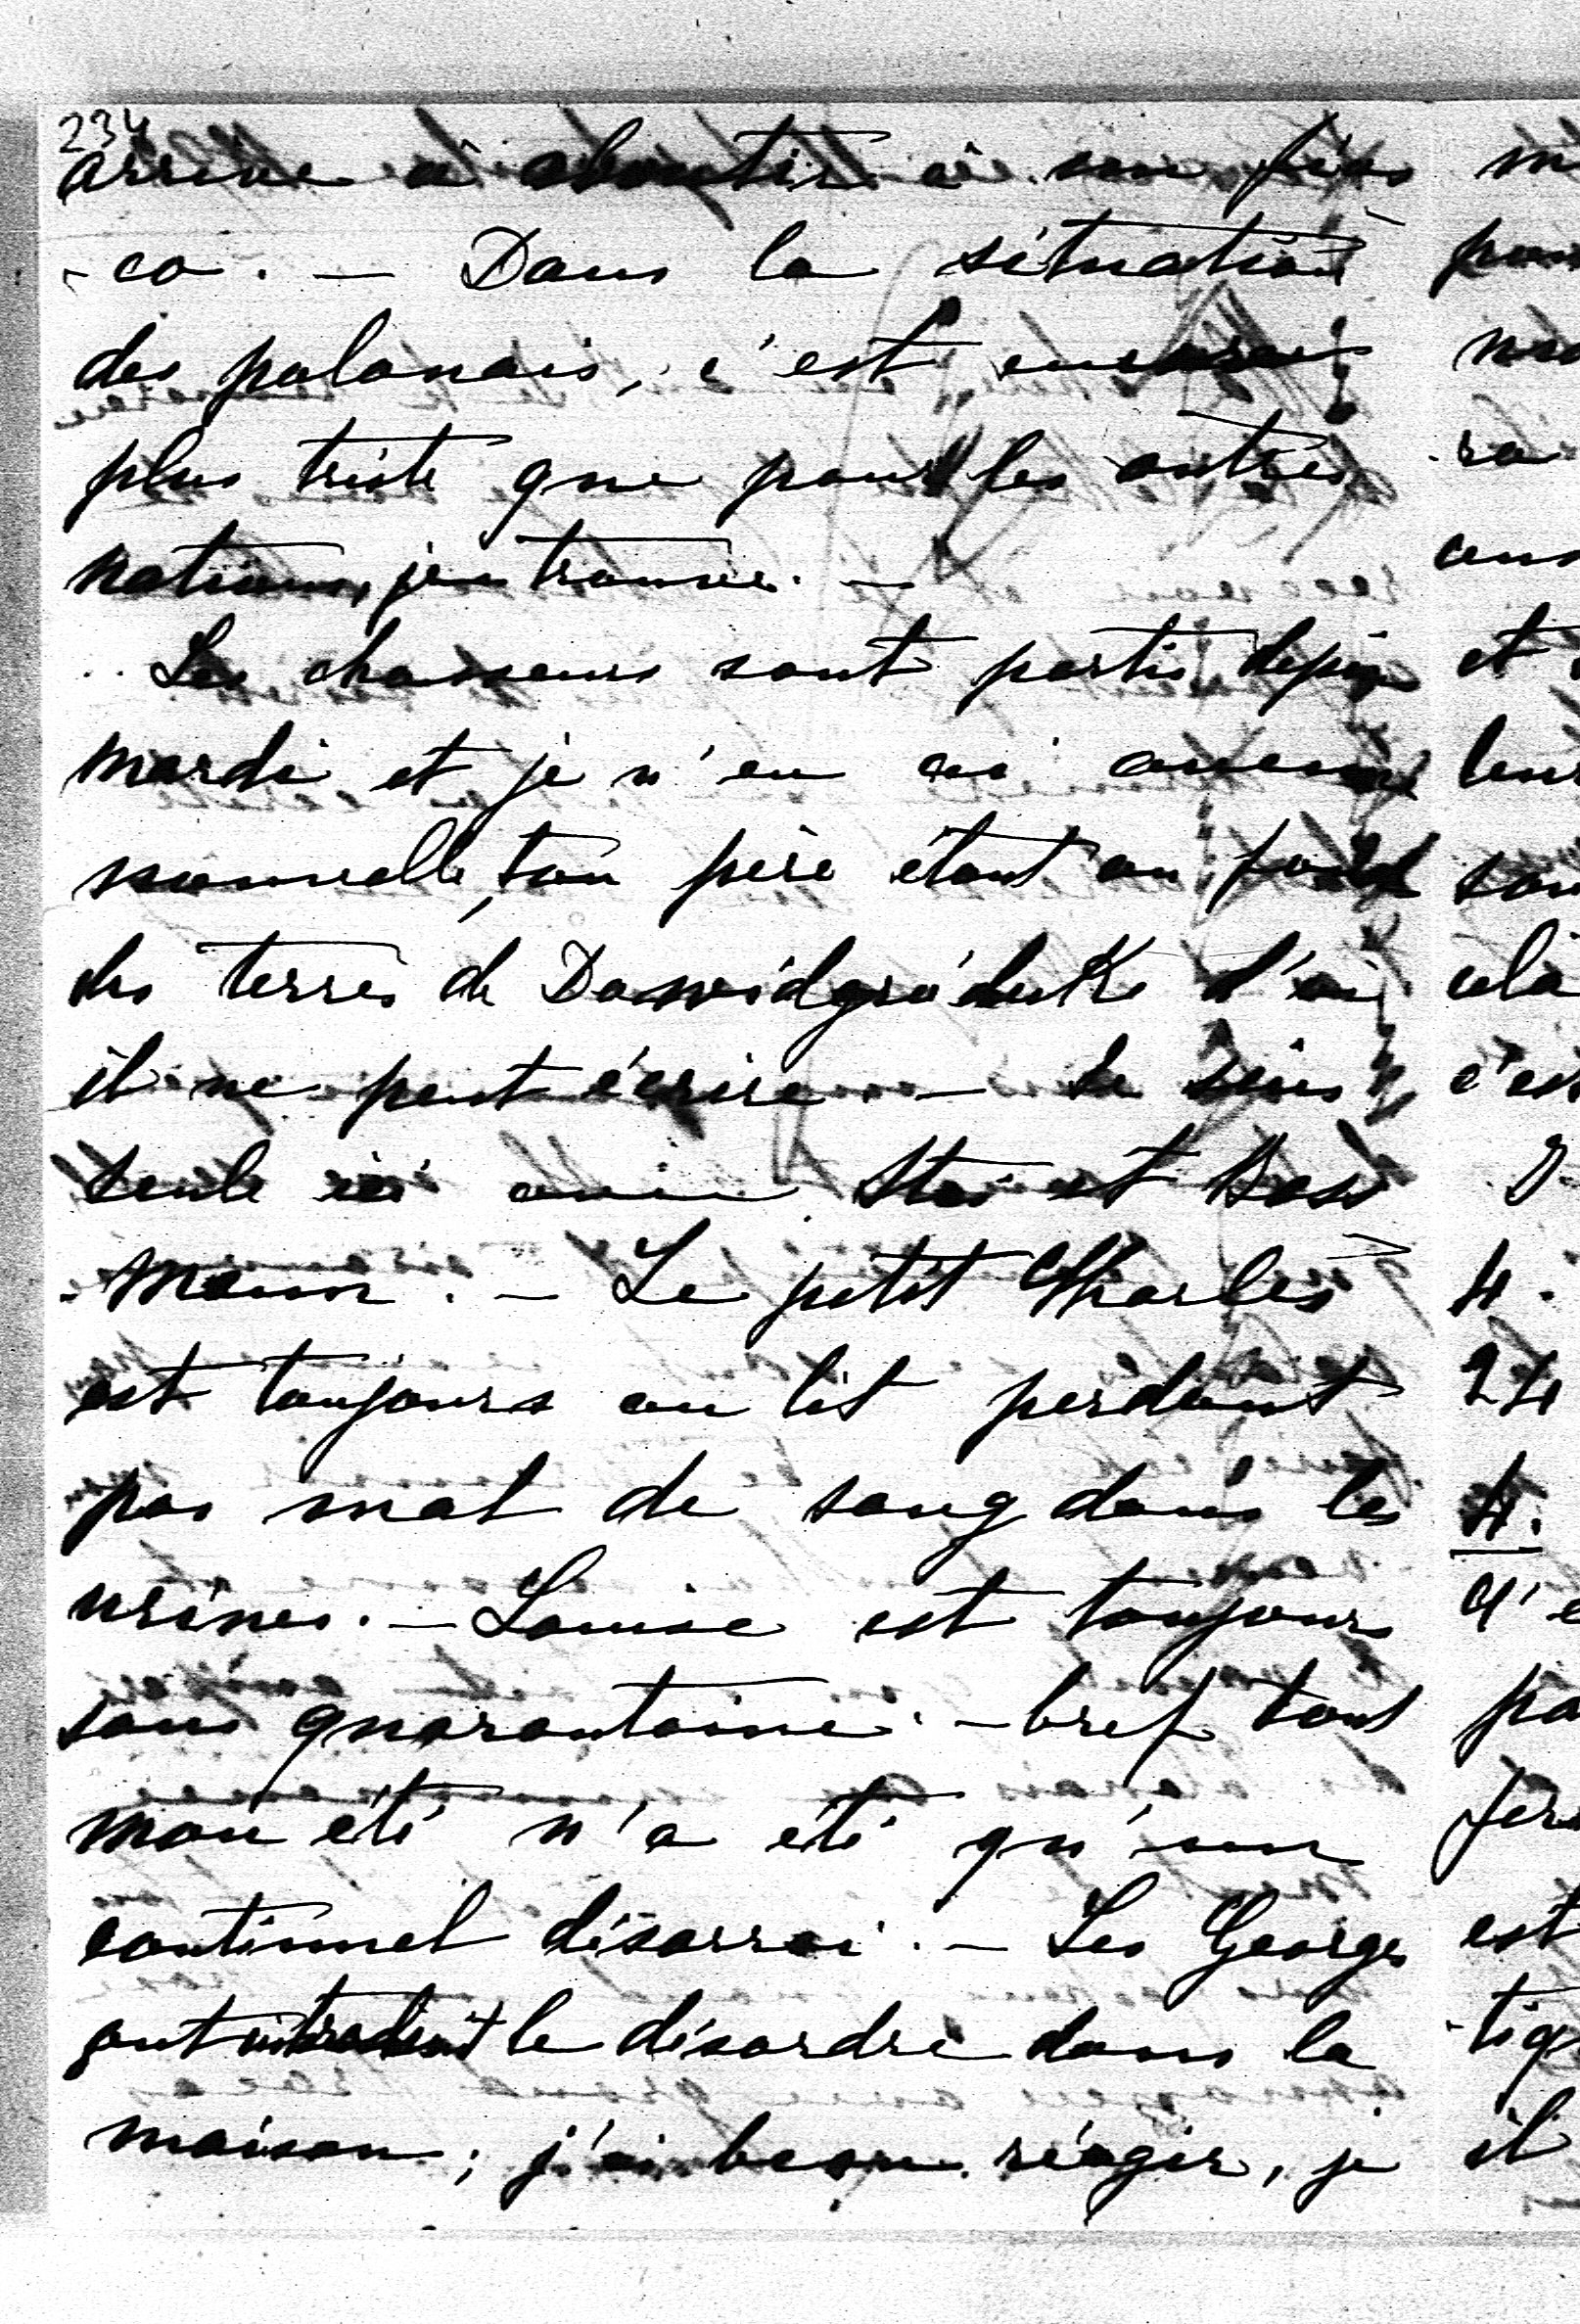 234
arrive à aboutir à un fias
-co. — Dans la situation
des polonais, c'est encore
plus triste que pour les autres
nations, je trouve. —
Les chasseurs sont partis depuis
mardi et je n'en ai aucune
nouvelle, ton père étant au fond
des terres de Dawidgródek d'où
il ne peut écrire. — Je suis
seule ici avec Stas et
. — Le petit Charles
est toujours au lit perdant
pas mal de sang dans les
urines. — Louise est toujours
sous quarantaine. — bref tout
mon été n'a été qu'un
continuel désarroi. — Les Georges
ont introduit le désordre dans la
maison; j'ai beau réagir, je